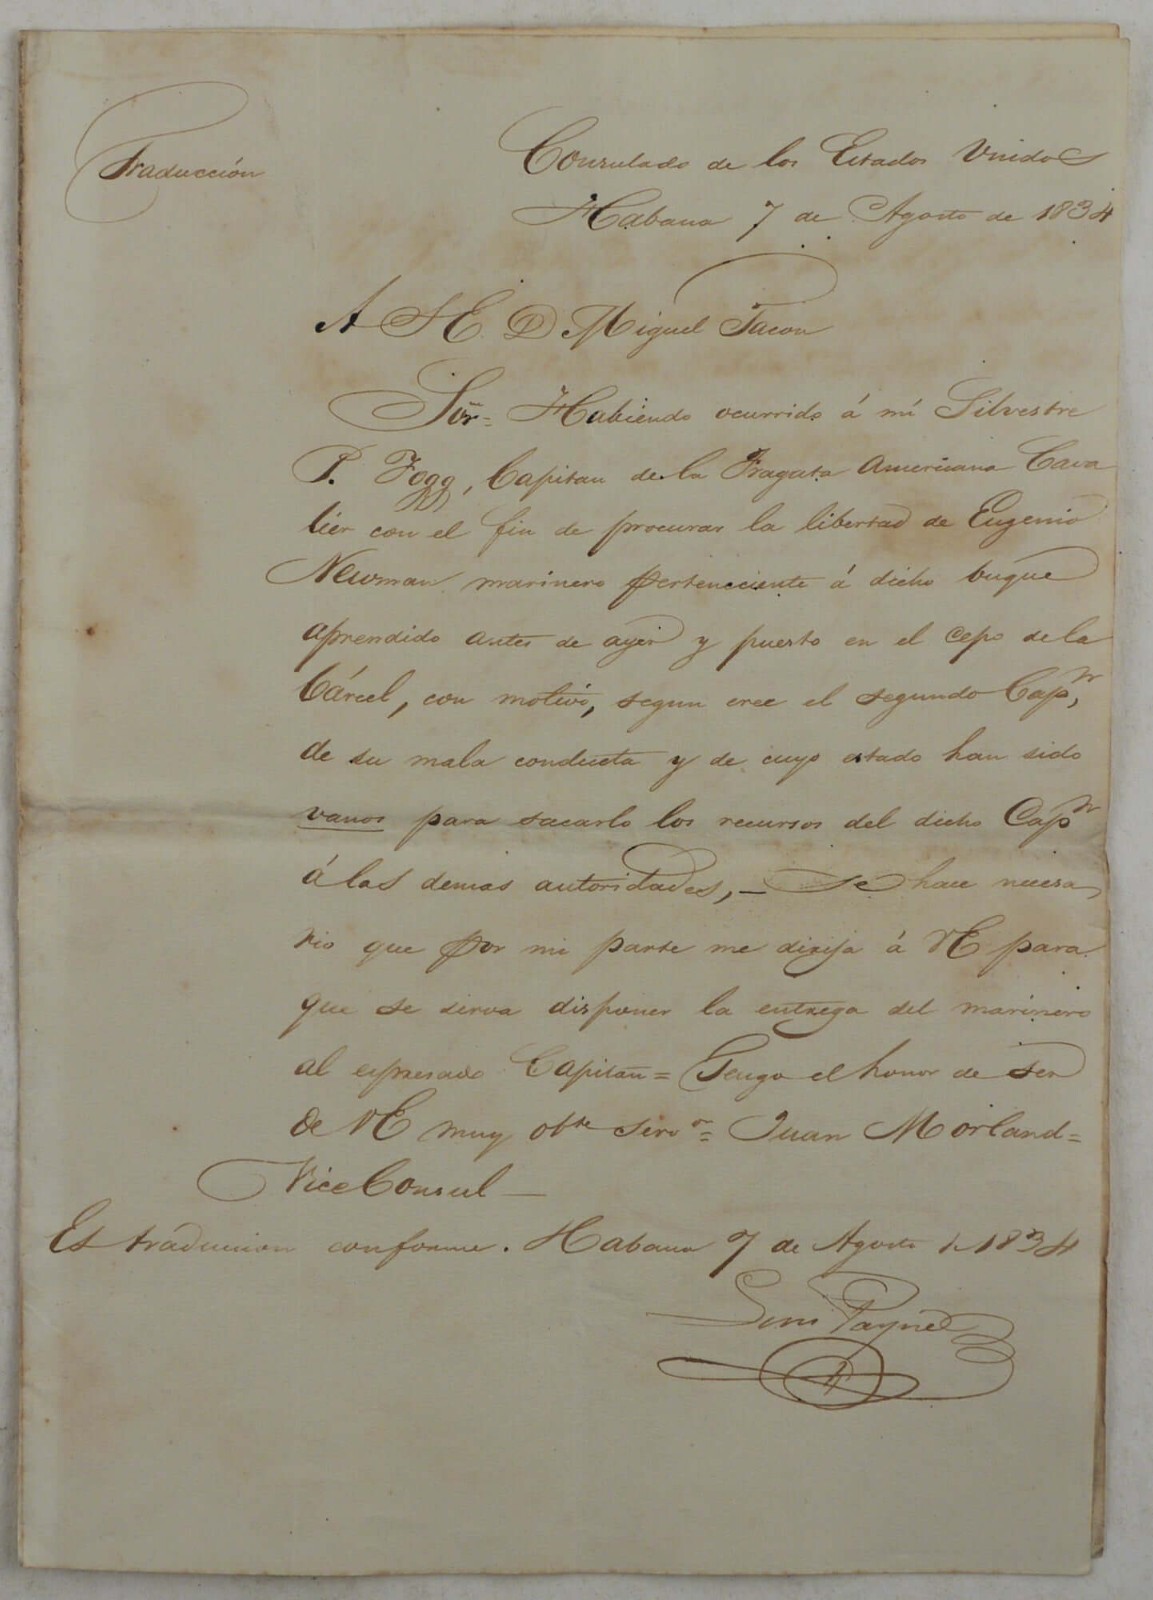 Traducción
Consulado de los Estados Unidos
Habana 7 de Agosto de 1834
A S E. D Miguel Tacon
Sor= Habiendo ocurrido á mi Silvestre
P. Fogg, Capitan de la Fragata Americana Cava
lier con el fin de procurar la libertad de Eugenio
Newman marinero perteneciente á dicho buque
aprendido antes de ayer y puesto en el cepo de la
Cárcel, con motivo, segun cree el segundo Capn,
de su mala conducta y de cuyo estado han sido
vanos para sacarlo los recursos del dicho Capn
á las demas autoridades,_ Se hace necesa
rio que por mi parte me dirija á VE para
que se sirva disponer la entrega del marinero
al espresado Capitan= Tengo el honor de ser
de VE muy obte servor= Juan Morland=
Vice Consul_
Es traduccion conforme. Habana 7 de Agosto 1834
Payne